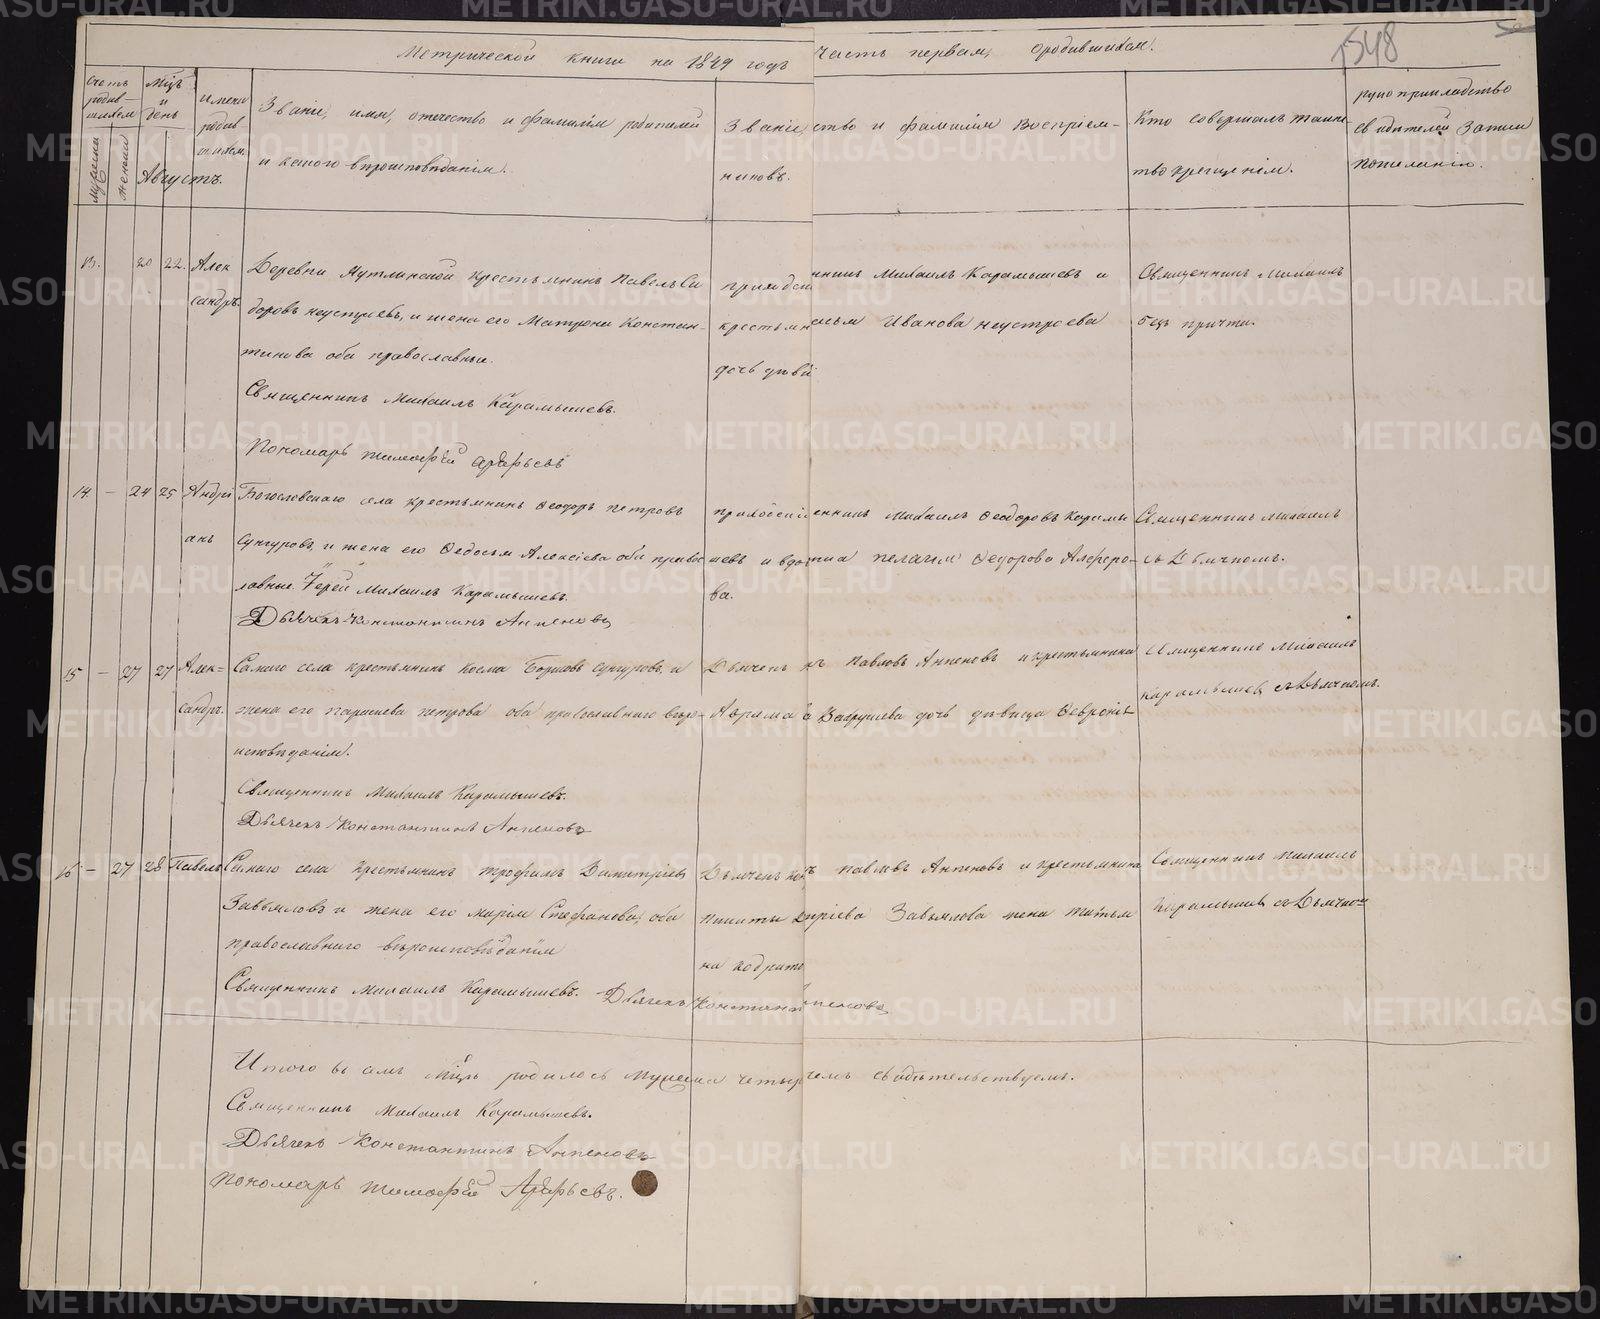 Метрической книги на 1849 годъ часть первая, о родившихся.
548
Счетъ родив-шихся
мужеска
женска
Мцъ и день
Августъ.
имена родив-шихся.
Званіе, имя, отчество и фамилія родителей
и какого вѣроисповѣданія.
Званіе ство и фамилія Воспріем-
никовъ.
Кто совершалъ таинс
тво крещенія.
рукоприкладство
свидѣтелей записи
по желанію.
13. 20 22. Алек
сандръ.
Деревни крестьянинъ Павелъ Си
доровъ и жена его Матрона Констан-
тинова оба православные.
Священникъ Михаилъ Карамышевъ.
Пономарь Тимофѣй
приходск нникъ Михаилъ Карамышевъ и
крестьян Иванова неустроева
дочь дѣви
Священникъ Михаилъ
безъ причта.
14 - 24 25 Андрі
анъ
Богословскаго села крестьянинъ Ѳеодоръ Петровъ
Сунгуровъ, и жена его Ѳедосья Алексіева оба право
лавные. Іерей Михаилъ Карамышевъ.
Дьячекъ Константинъ Аппеновъ
приходскій енникъ Михаилъ Ѳеодоровъ Карамы
шевъ и вдо Пелагія Ѳедорова
ва.
Священникъ Михаилъ
съ Дьячкомъ.
15 - 27 27 Алек=
сандръ.
Самаго села крестьянинъ Косма Сунгуровъ, и
жена его Параскева Петрова оба православнаго вѣро-
исповѣданія.
Священникъ Михаилъ Карамышевъ.
Дьячекъ Константинъ Аппеновъ
Дьячекъ Павловъ Аппеновъ и крестьянина
Аврама Вахрушева дочь дѣвица Ѳевронія
Священникъ Михаилъ
Карамышевъ съ Дьячкомъ.
16 - 27 28 Павелъ
Самаго села крестьянинъ Трофимъ Димитріевъ
Завьяловъ и жена его Марія Стефанова, оба
православнаго вѣроисповѣданія
Священникъ Михаилъ Карамышевъ. Дьячекъ Константинъ Аппеновъ
Дьячекъ Кон Павловъ Аппеновъ и крестьянина
Никиты Завьялова жена Татьяна
Священникъ Михаилъ
Карамышевъ съ Дьячкомъ
Итого въ мцѣ родилось мужеска четыре чемъ свидѣтельствуемъ.
Священникъ Михаилъ Карамышевъ.
Дьячекъ Константинъ Аппеновъ
Пономарь Тимофѣй
METRIKI.GASO-URAL.RU